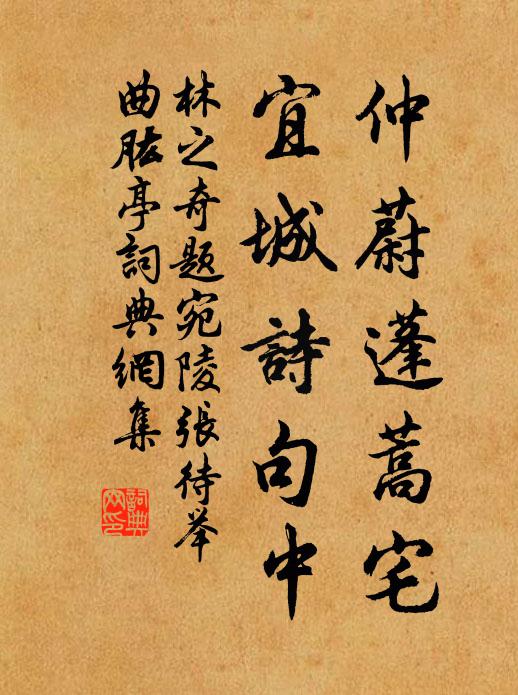 仲蔚蓬蒿宅
宜城詩句中
林之奇題宛陵張待举
曲肱亭詞典網集
詞典网印